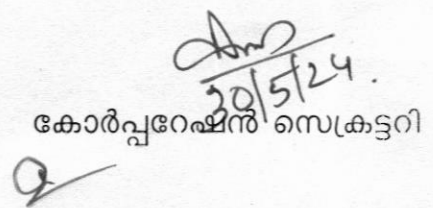 30/5/24.
കോർപ്പറേഷൻ സെക്രട്ടറി